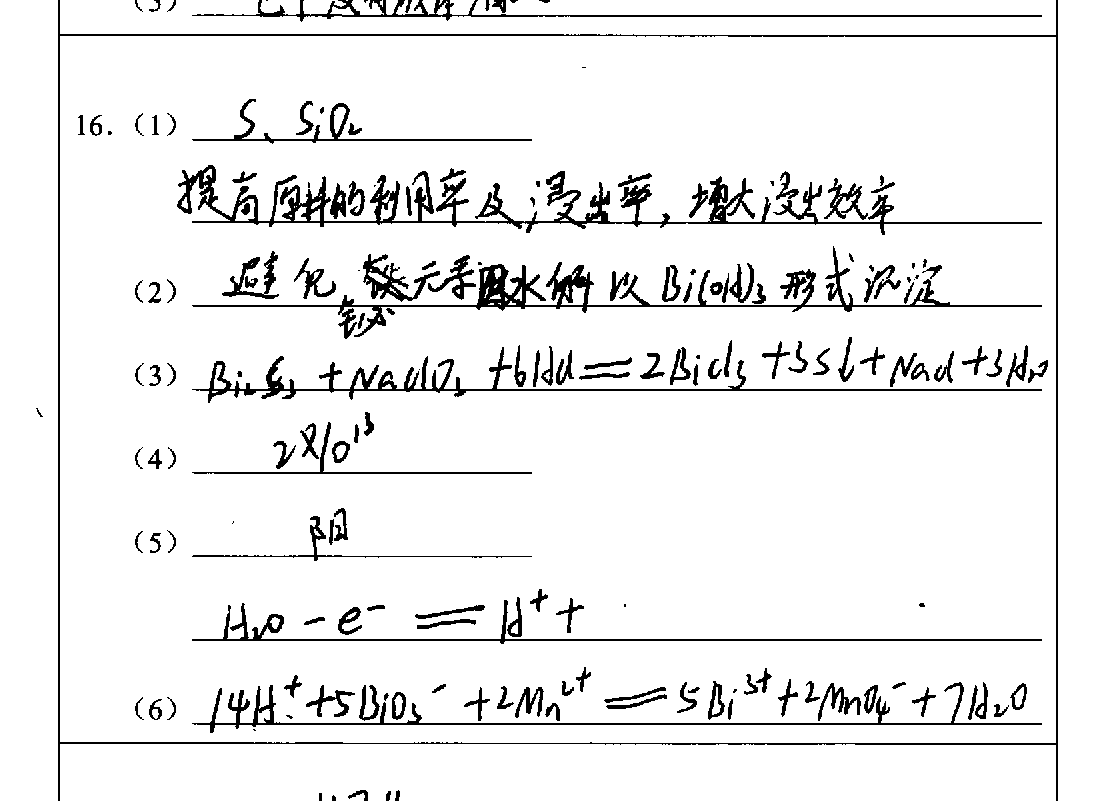 16.（1） S、SiO₂
提高原料的利用率及浸出率，增大浸出效率
（2） 避免铋元素因水解以Bi(OH)₃形式沉淀
（3） Bi₂S₃ + NaClO₃ + 6HCl = 2BiCl₃ + 3S↓ + NaCl + 3H₂O
（4） 2×10¹³
（5） 阳
H₂O - e⁻ = H⁺ +
（6） 14H⁺ + 5BiO₃⁻ + 2Mn²⁺ = 5Bi³⁺ + 2MnO₄⁻ + 7H₂O